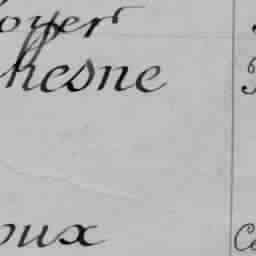 oyer
hesne
oux